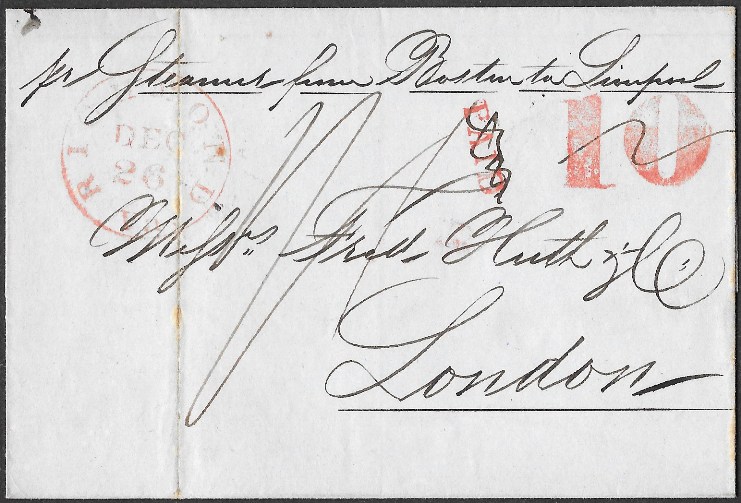 pr Steamer from Boston to Liverpool
PAID 10
DEC
26
Messrs Fredk Huth & Co
London